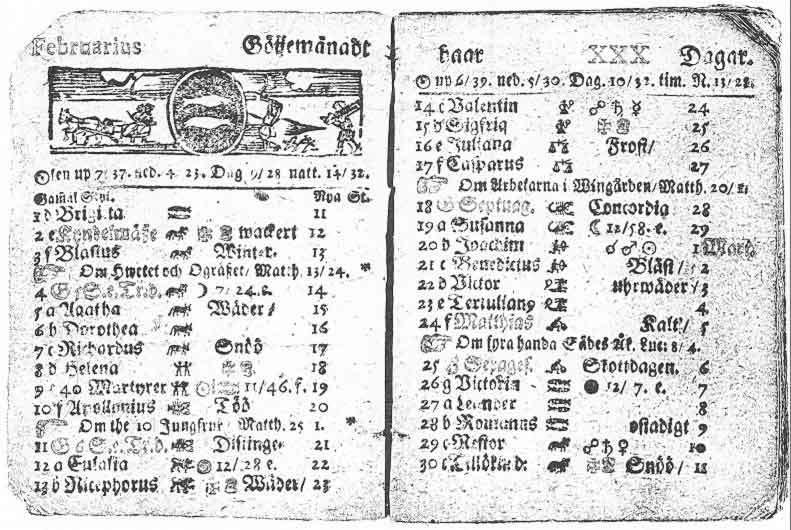 Februarius Göijemånadt
Solen up 7/37. ned. 4 23. Dag 9/28 natt. 14/32.
Gamal Styl. Nya St.
1 d Brigitta 11
2 e Kyndelmässe wackert 12
3 f Blasius Winter. 13
Om Hwetet och Ogräset/ Matth. 13/24. *
4 G 5 S.e.Tr.d. ☽ 7/24.e. 14
5 a Agatha Wäder/ 15
6 b Dorothea 16
7 c Richardus Snöö 17
8 d Helena 18
9 e 40 Martyrer 11/46.f. 19
10 f Apollonius Töö 20
Om the 10 Jungfrur/ Matth. 25 1. *
11 G 6 S.e.Tr.d. Distinge 21
12 a Eulalia 12/28 e. 22
13 b Nicephorus Wäder/ 23
haar XXX Dagar.
☉ up 6/39. ned. 5/30. Dag. 10/32. tim. N. 13/28.
14 c Valentin ☍ ♄ ☿ 24
15 d Sigfrid 25
16 e Juliana Frost/ 26
17 f Casparus 27
Om Arbetarna i Wingården/ Matth. 20/1.
18 G Septuag. Concordia 28
19 a Susanna ☾ 12/58. e. 29
20 b Joachim ☌ ♂ ☉ 1 Mart.
21 c Benedictus Bläst/ 2
22 d Victor uhrwäder/ 3
23 e Tertulian9 4
24 f Matthias Kalt/ 5
Om fyra handa Sädes Åk. Luc: 8/4.
25 G Sexages. Skottdagen. 6
26 g Victorin ● 12/7. e. 7
27 a Leander 8
28 b Romanus ostadigt 9
29 c Nestor ☍ ♄ ♀ 10
30 c Snöö/ 11